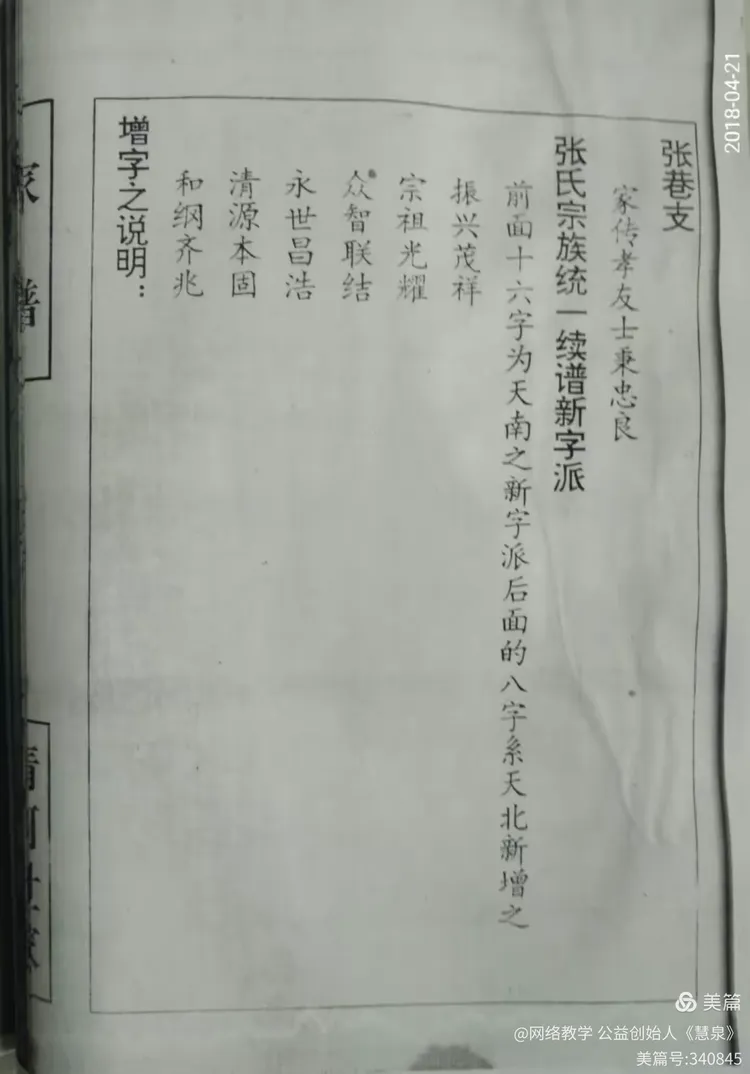 张巷支
家传孝友士秉忠良
张氏宗族统一续谱新字派
前面十六字为天南之新字派后面的八字系天北新增之
振兴茂祥
宗祖光耀
众智联结
永世昌浩
清源本固
和纲齐兆
增字之说明：
家谱
清河
2018-04-21
美篇
@网络教学 公益创始人《慧泉》
美篇号:340845